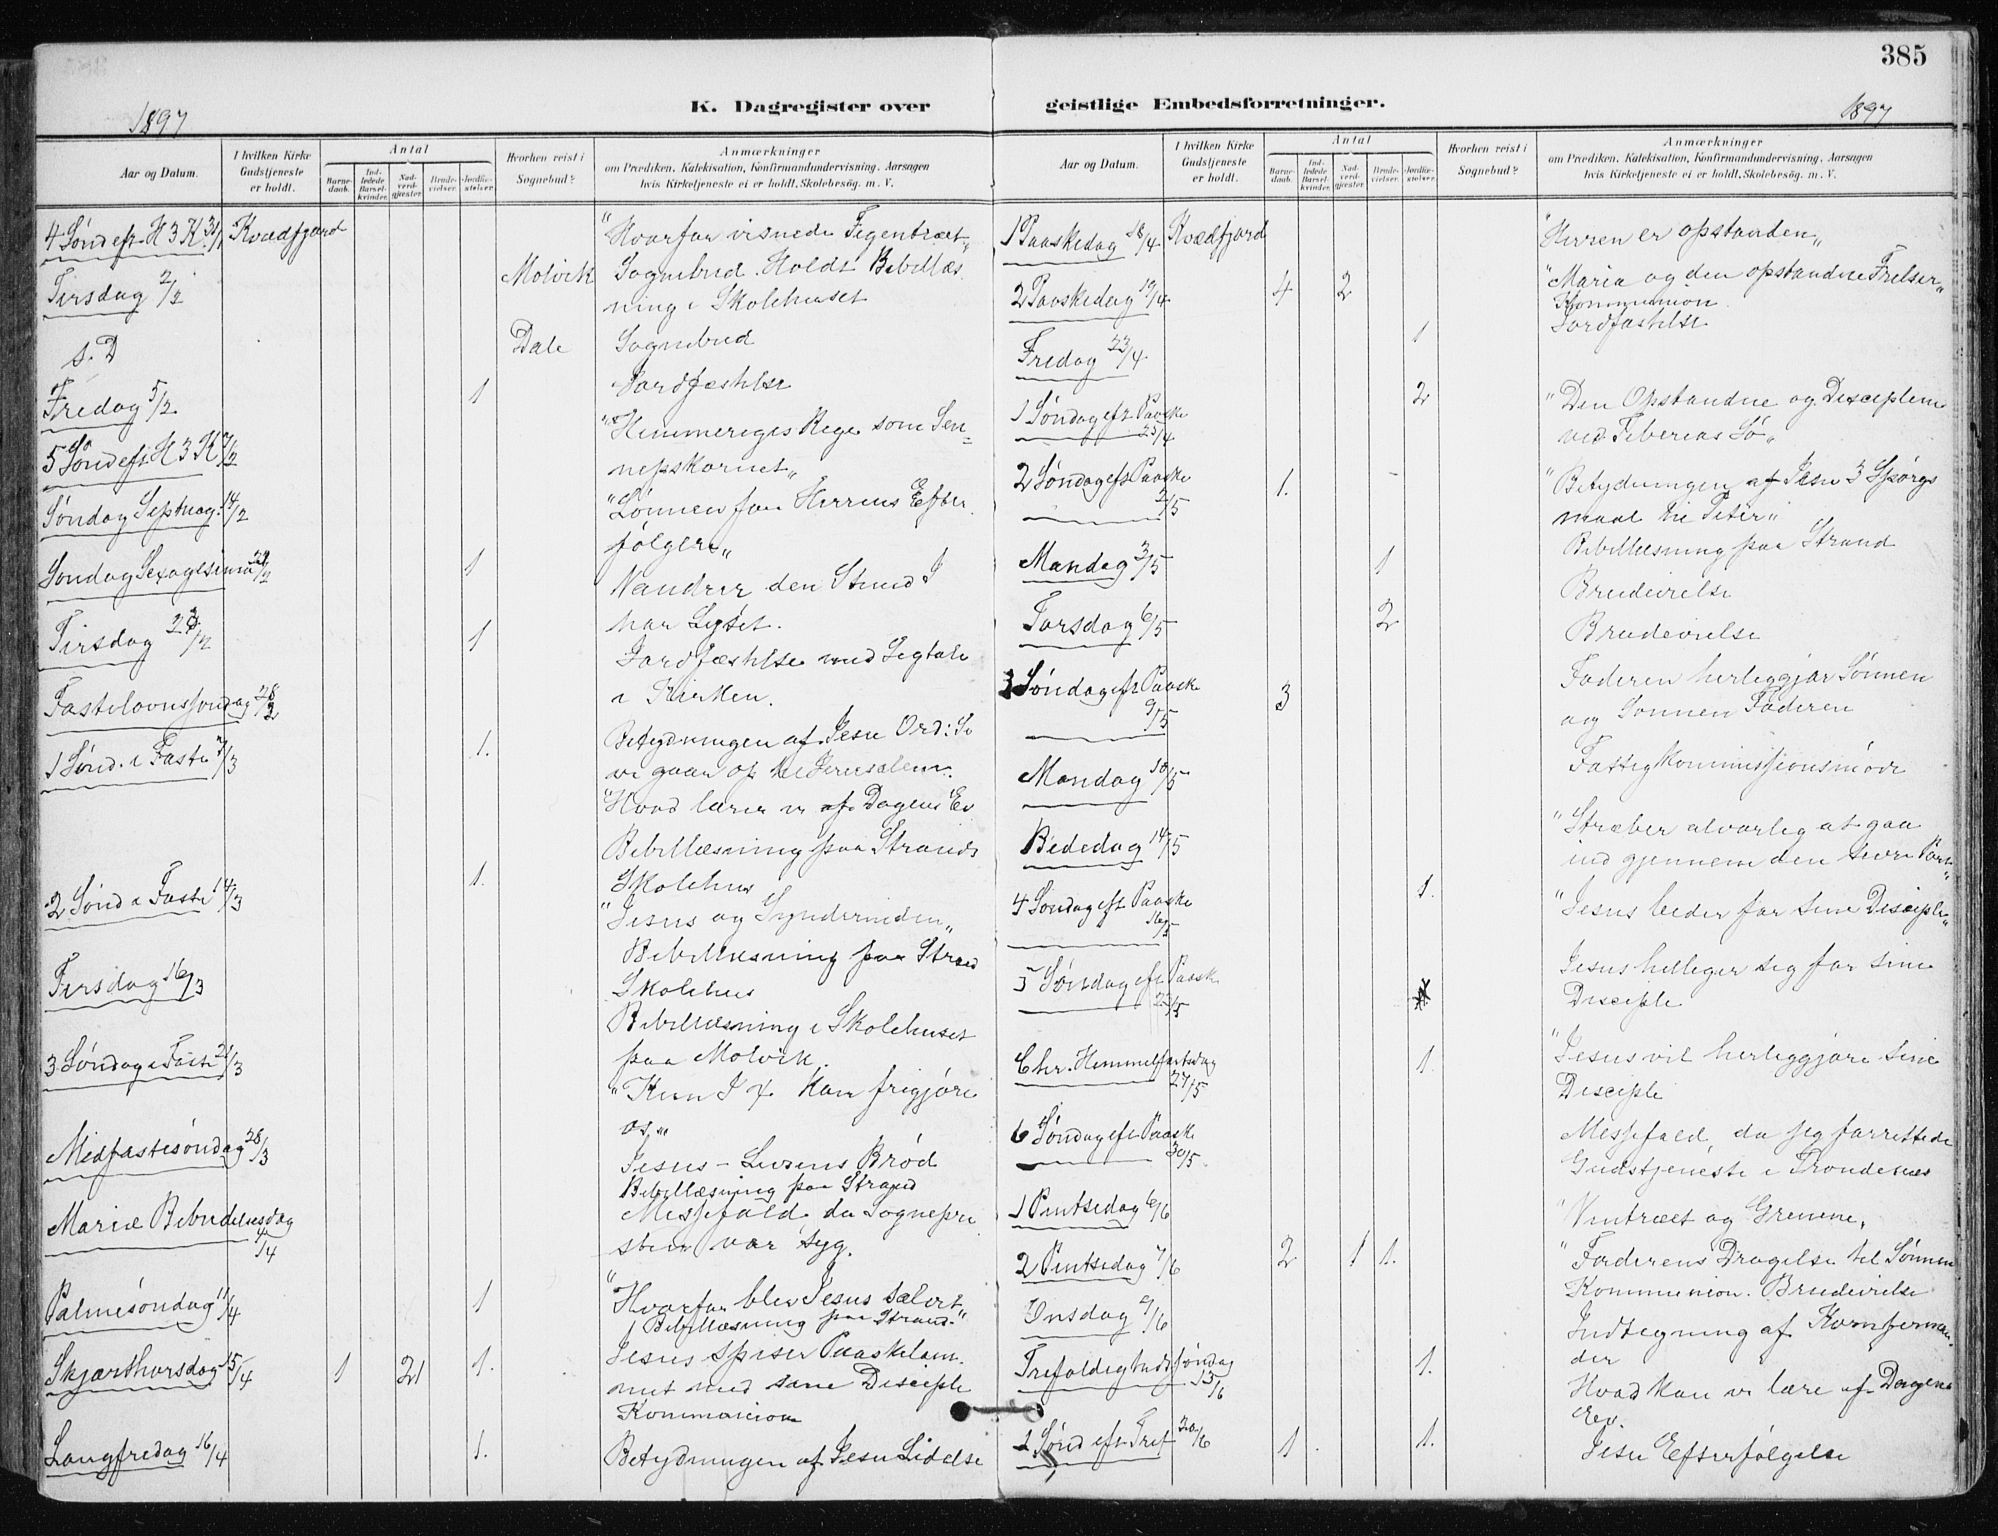 385
K. Dagregister over
1897
Aar og Datum.
I hvilken Kirke Gudstjeneste er holdt.
Antal
Barnedaab.
Indledede Barselkvinder.
Nadverdgjester.
Brudevielser.
Jordfæstelser.
Hvorhen reist i Sognebud?
Anmærkninger
om Prædiken, Katekisation, Konfirmandundervisning, Aarsagen
hvis Kirketjeneste ei er holdt, Skolebesøg. m. V.
4 Sønd eft. H 3 K 31/1 Kvædfjord
"Hvorfor visnede Figentræet"
Tirsdag 2/2 Molvik Sognebud. Holdt Bibellæs
ning i Skolehuset
s. D Dale Sognebud
Fredag 5/2 1 Jordfæstelse
5 Sønd eft. H 3 K 7/2 "Himmeriges Rige som Sen=
nepskornet"
Søndag Septuag. 14/2 "Lønnen for Herrens Efter
følgere"
Søndag Sexagesima 21/2 1 Vandrer den Stund I
har Lyset.
Tirsdag 23/2 1 Jordfæstelse med Ligtale
i Kirken.
Fastelavnssøndag 28/2
Betydningen af Jesu Ord: Se
vi gaar op til Jerusalem.
1 Sønd. i Faste 7/3 1.
"Hvad lærer vi af Dagens Ev
Bibellæsning paa Strands
Skolehus
2 Sønd i Faste 14/3 1.
"Jesus og Synderinden"
Bibellæsning paa Strand
Skolehus
Tirsdag 16/3
Bibellæsning i Skolehuset
paa Molvik.
3 Søndag i Faste 21/3
"Kun J X kan frigjøre
os"
Midfastesøndag 28/3
Jesus - Livsens Brød
Bibellæsning paa Strand
Mariæ Bebudelsesdag 4/4
Messefald da Sognepre
sten var syg.
Palmesøndag 11/4 1
"Hvorfor blev Jesus salvet"
Bibellæsning paa Strand
Skjærthorsdag 15/4 1 21 1.
Jesus spiser Paaskelam
met med sine Disciple
Kommunion
Langfredag 16/4 1. Betydningen af Jesu Lidelse
geistlige Embedsforretninger.
1897
Aar og Datum.
I hvilken Kirke Gudstjeneste er holdt.
Antal
Barnedaab.
Indledede Barselkvinder.
Nadverdgjester.
Brudevielser.
Jordfæstelser.
Hvorhen reist i Sognebud?
Anmærkninger
om Prædiken, Katekisation, Konfirmandundervisning, Aarsagen
hvis Kirketjeneste ei er holdt, Skolebesøg. m. V.
1 Paaskedag 18/4 Kvædfjord "Herren er opstanden"
2 Paaskedag 19/4 4 2 "Maria og den opstandne Frelser"
Kommunion
Fredag 23/4 1 Jordfæstelse
1 Søndag eft Paaske 25/4 2 "Den Opstandne og Disciplene
ved Tiberias Sø"
2 Søndag eft Paaske 2/5 1. "Betydningen af Jesu 3 Spørgs
maal til Peter"
Bibellæsning paa Strand
Mandag 3/5 1 Brudevielse
Torsdag 6/5 2 Brudevielse
3 Søndag eft Paaske 9/5 3
Faderen herliggjør Sønnen
og Sønnen Faderen
Mandag 10/5 Fattigkommissionsmøde
Bededag 14/5 "Stræber alvorlig at gaa
ind gjennem den snevre Port"
4 Søndag eft Paaske 16/5 1. "Jesus beder for sine Disciple"
5 Søndag eft Paaske 23/5
Jesus helliger sig for sine
Disciple
Chr. Himmelfartsdag 27/5 1. "Jesus vil herliggjøre sine
Disciple
6 Søndag eft Paaske 30/5
Messefald, da jeg forrettede
Gudstjeneste i Trondenæs
1 Pintsedag 6/6 "Vintræet og Grenene,
2 Pintsedag 7/6 2 1 1. "Faderens Dragelse til Sønnen
Kommunion. Brudevielse
Onsdag 9/6 Indtegning af Konfirman
der
Trefoldighedssøndag 13/6 1. Hvad kan vi lære af Dagens
Ev.
1 Sønd eft Tref 20/6 1 1. Jesu Efterfølgelse